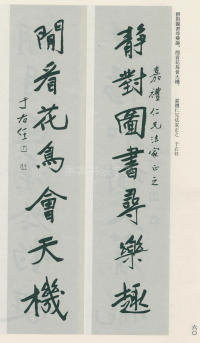 靜對圖書尋樂趣
嘉禮仁兄法家正之
閒看花鳥會天機
于右任
靜對圖書尋樂趣,閒看花鳥會天機
嘉禮仁兄法家正之 于右任
六〇